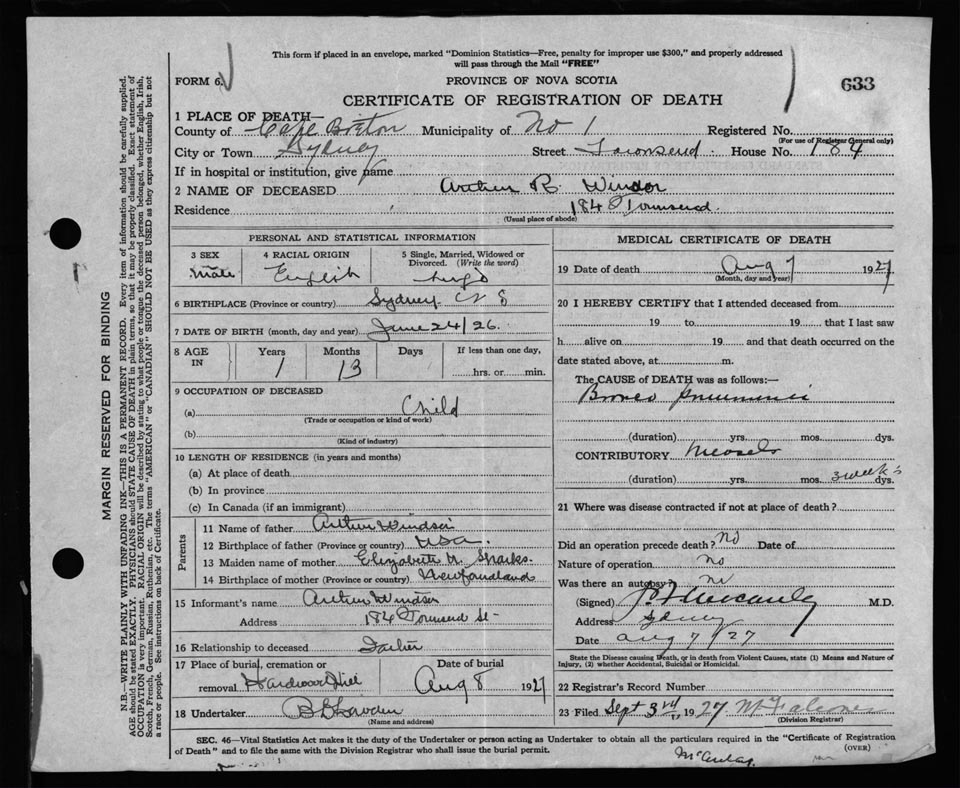 This form if placed in an envelope, marked "Dominion Statistics—Free, penalty for improper use $300," and properly addressed
will pass through the Mail "FREE"
FORM 6.
PROVINCE OF NOVA SCOTIA
633
CERTIFICATE OF REGISTRATION OF DEATH
1 PLACE OF DEATH—
County of Cape Breton Municipality of No 1 Registered No.
(For use of Registrar General only)
City or Town Sydney Street Townsend House No. 184
If in hospital or institution, give name
2 NAME OF DECEASED Arthur R. Windsor
Residence 184 Townsend
(Usual place of abode)
PERSONAL AND STATISTICAL INFORMATION
3 SEX
Male
4 RACIAL ORIGIN
English
5 Single, Married, Widowed or
Divorced. (Write the word)
6 BIRTHPLACE (Province or country) Sydney N S
7 DATE OF BIRTH (month, day and year) June 24/26.
8 AGE
IN
Years
1
Months
13
Days
If less than one day,
hrs. or min.
9 OCCUPATION OF DECEASED
(a) Child
(Trade or occupation or kind of work)
(b)
(Kind of industry)
10 LENGTH OF RESIDENCE (in years and months)
(a) At place of death
(b) In province
(c) In Canada (if an immigrant)
Parents
11 Name of father Arthur Windsor
12 Birthplace of father (Province or country) USA.
13 Maiden name of mother Elizabeth M. Sparks.
14 Birthplace of mother (Province or country) Newfoundland
15 Informant's name Arthur Windsor
Address 184 Townsend St-
16 Relationship to deceased Father
17 Place of burial, cremation or
removal Hardwood Hill
Date of burial
Aug 8 1927
18 Undertaker
(Name and address)
MEDICAL CERTIFICATE OF DEATH
19 Date of death Aug 7 1927
(Month, day and year)
20 I HEREBY CERTIFY that I attended deceased from
19 to 19 that I last saw
h alive on 19 and that death occurred on the
date stated above, at m.
The CAUSE OF DEATH was as follows:—
Bronco Pneumonia
(duration) yrs. mos. dys.
CONTRIBUTORY Measels
(duration) yrs. mos. 3 weeks dys.
21 Where was disease contracted if not at place of death?
Did an operation precede death? No Date of
Nature of operation No
Was there an autopsy? no
(Signed) M.D.
Address Sydney
Date Aug 7/27
State the Disease causing Death, or in death from Violent Causes, state (1) Means and Nature of
Injury, (2) whether Accidental, Suicidal or Homicidal.
22 Registrar's Record Number
23 Filed Sept 3rd 1927
(Division Registrar)
SEC. 46—Vital Statistics Act makes it the duty of the Undertaker or person acting as Undertaker to obtain all the particulars required in the "Certificate of Registration
of Death" and to file the same with the Division Registrar who shall issue the burial permit.
(OVER)
MARGIN RESERVED FOR BINDING
N.B.—WRITE PLAINLY WITH UNFADING INK—THIS IS A PERMANENT RECORD. Every item of information should be carefully supplied.
AGE should be stated EXACTLY. PHYSICIANS should STATE CAUSE OF DEATH in plain terms, so that it may be properly classified. Exact statement of
OCCUPATION is very important. RACIAL ORIGIN will be described by stating to what people or tongue the deceased person belonged, whether English, Irish,
Scotch, French, German, Russian, Ruthenian, etc. The terms "AMERICAN" or "CANADIAN" SHOULD NOT BE USED as they express citizenship but not
a race or people. See instructions on back of Certificate.